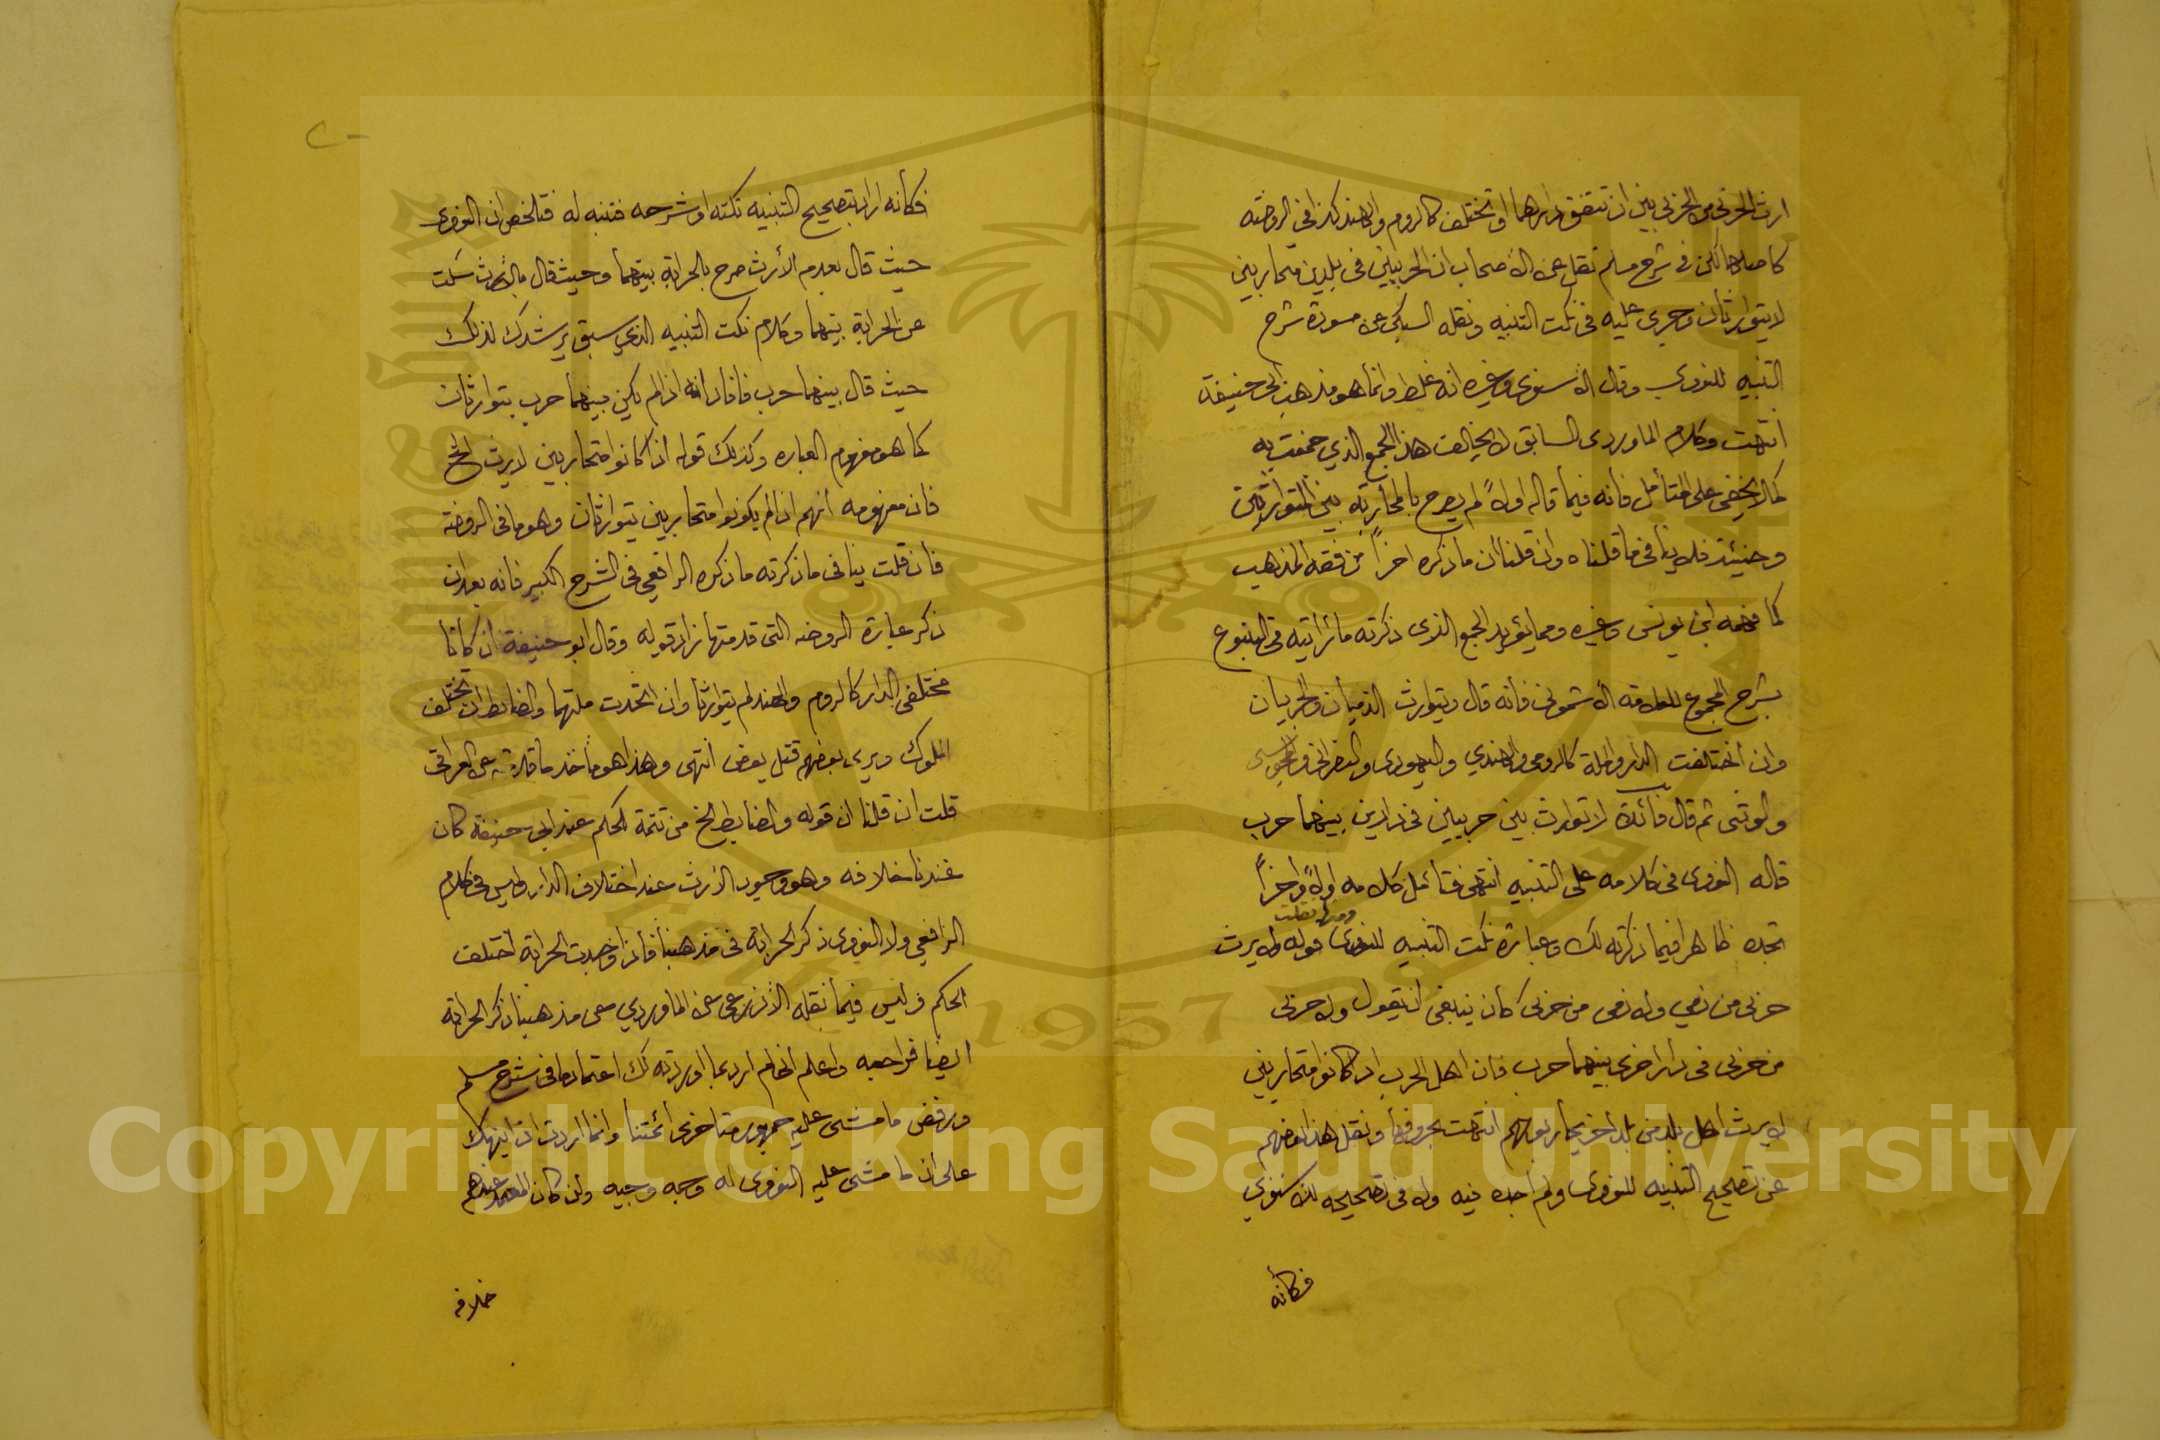 ارث الحربي من الحربي بين ان تتفق دارهما او تختلف كالروم والهند كذا في الروضة
كاصلها لكن في شرح مسلم نقلا عن الاصحاب ان الحربيين في بلدين متحاربين
لا يتوارثان وجرى عليه في نكت التنبيه ونقله السبكي عن مسودة شرح
التنبيه للنووي وقال الاسنوي وغيره انه غلط وانما هو مذهب ابي حنيفة
انتهت وكلام الماوردي السابق لا يخالف هذا الجمع الذي جمعت به
كما لا يخفى على المتأمل فانه فيما قاله اولاً لم يصرح بالمحاربة بين المتوارثين
وحينئذ فلا ينافي ما قلناه وان قلنا ان ما ذكره اخراً من فقه المذهب
كما فهمه ابن يونس وغيره ومما يؤيد الجمع الذي ذكرته ما رأيته في الينبوع
بشرح المجموع للعلامة الاشموني فانه قال ويتوارث الذميان والحربيان
وان اختلفت الدار والملة كالرومي والهندي واليهودي والنصراني والمجوسي
والوثني ثم قال فائدة لا توارث بين حربيين في دارين بينهما حرب
قاله النووي في كلامه على التنبيه انتهى فتأمل كلامه اولاً واخراً
تجده ظاهرا فيما ذكرته لك وعبارة نكت التنبيه للنووي ومنها نقلت قوله ولا يرث
حربي من ذمي ولا ذمي من حربي كان ينبغي ان يقول ولا حربي
من حربي في دار اخرى بينهما حرب فان اهل الحرب اذا كانوا متحاربين
لا يرث اهل بلد من بلد اخر يحاربونهم انتهت بحروفها ونقل هذا بعضهم
عن تصحيح التنبيه للنووي ولم اجده فيه ولا في تصحيحه للاسنوي
فكأنه
فكأنه اراد بتصحيح التنبيه نكته او شرحه فتنبه له فتلخص ان النووي
حيث قال بعدم الأرث صرح بالحرابة بينهما وحيث قال بالأرث سكت
عن الحرابة بينهما وكلام نكت التنبيه الذي سبق يرشدك لذلك
حيث قال بينهما حرب فافاد انه اذا لم يكن بينهما حرب يتوارثان
كما هو مفهوم العبارة وكذلك قوله اذا كانوا متحاربين لا يرث الخ
فان مفهومه انهم اذا لم يكونوا متحاربين يتوارثان وهو ما في الروضة
فان قلت ينافي ما ذكرته ما ذكره الرافعي في الشرح الكبير فانه بعد ان
ذكر عبارة الروضه التي قدمتها زاد قوله وقال ابو حنيفة ان كانا
مختلفي الدار كالروم والهند لم يتوارثا وان اتحدت ملتهما والضابط ان تختلف
الملوك ويرى بعضهم قتل بعض انتهى وهذا هو مأخذ ما قدمته عن العراقي
قلت ان قلنا ان قوله والضابط الخ من تتمة الحكم عند ابي حنيفة كان
عندنا خلافه وهو وجود الأرث عند اختلاف الدار وليس في كلام
الرافعي ولا النووي ذكر الحرابة في مذهبنا فاذا وجدت الحرابة اختلف
الحكم وليس فيما نقله الأذرعي عن الماوردي من مذهبنا ذكر الحرابة
ايضا فراجعه واعلم اني لم ارد بما اوردته لك اعتماد ما في شرح مسلم
ورفض ما مشى عليه جمهور متأخرى أئمتنا وانما اردت ان انبهك
على ان ما مشى عليه النووي له وجه وجيه وان كان المعتمد عندهم
خلافه